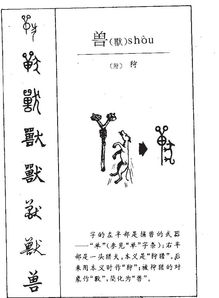 兽(獸)shòu
(附) 狩
字的左半部是捕兽的武器
——"单"(参见"单"字条);右半
部是一头猎犬。本义是"狩猎"。后
来用本义时作"狩";被狩猎的对
象作"獸"。简化为"兽"。
獸
獸
獸
兽